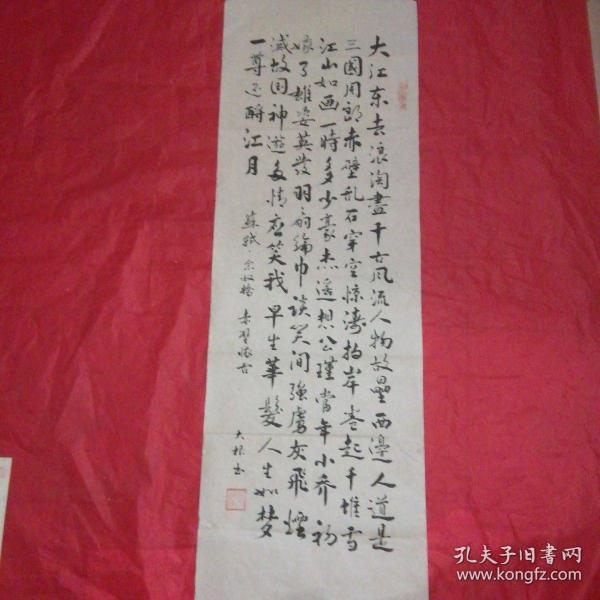 大江东去浪淘盡千古风流人物故壘西邊人道是
三國周郎赤壁乱石穿空惊涛拍岸卷起千堆雪
江山如画一時多少豪杰遥想公瑾當年小乔初
嫁了雄姿英發羽扇綸巾谈笑间強虜灰飛煙
滅故国神遊多情应笑我早生華髮人生如梦
一尊还酹江月
蘇軾 念奴嬌 赤壁怀古
大根书
孔夫子旧书网
www.kongfz.com